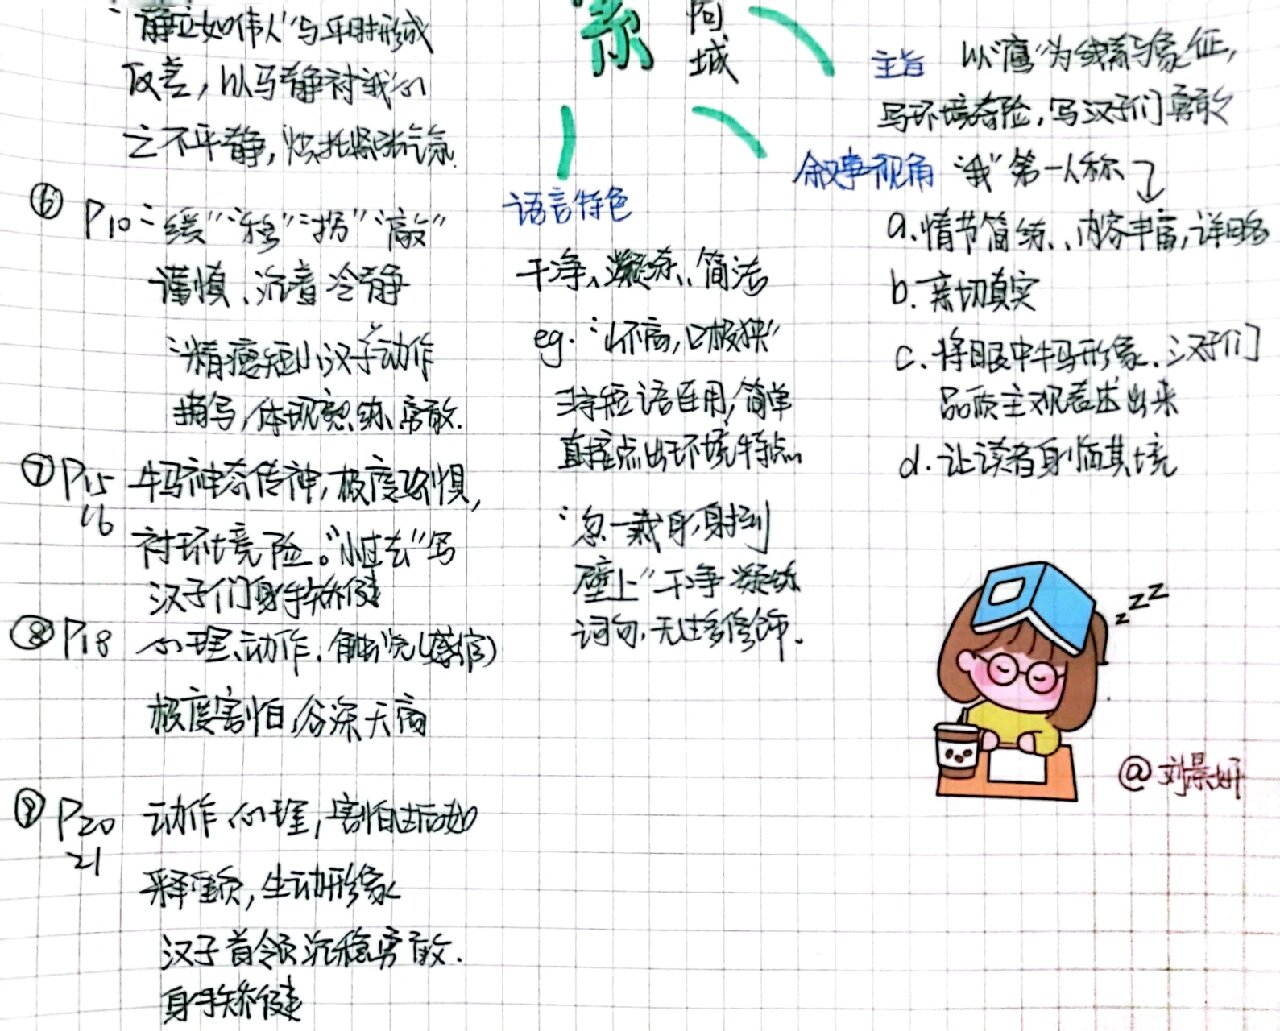 “静立如伟人”与平时形成
反差，以马静衬我心
之不平静，烘托紧张气氛.
⑥ P10 “缓”“移”“扬”“敲”
谨慎、沉着冷静
“精瘦短小汉子”动作
描写，体现熟练、勇敢.
⑦ P15 16 牛马神态传神，极度恐惧，
衬环境险。“小过去”写
汉子们身手矫健
⑧ P18 心理、动作、触觉（感官）
极度害怕，谷深天高
⑨ P20 21 动作 心理，害怕过后如
释重负，生动形象
汉子首领沉稳勇敢.
身手矫健
索
阿城
语言特色
干净、凝练、简洁
eg.“山不高，口极狭”
三字短语连用，简单
直接点出环境特点
“忽一裁身，射到
壁上”干净凝练
词句，无过多修饰.
主旨 以“鹰”为线索与象征，
写环境奇险，写汉子们勇敢
叙事视角 “我”第一人称
a.情节简练、内容丰富，详略
b.亲切真实
c.将眼中牛马形象、汉子们
品质主观表达出来
d.让读者身临其境
zzz
@刘景妍